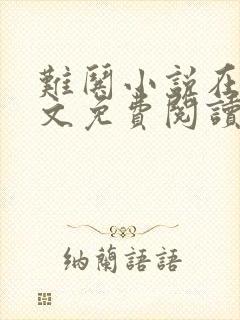 難鬥小說在
文免費閱讀
納蘭語語